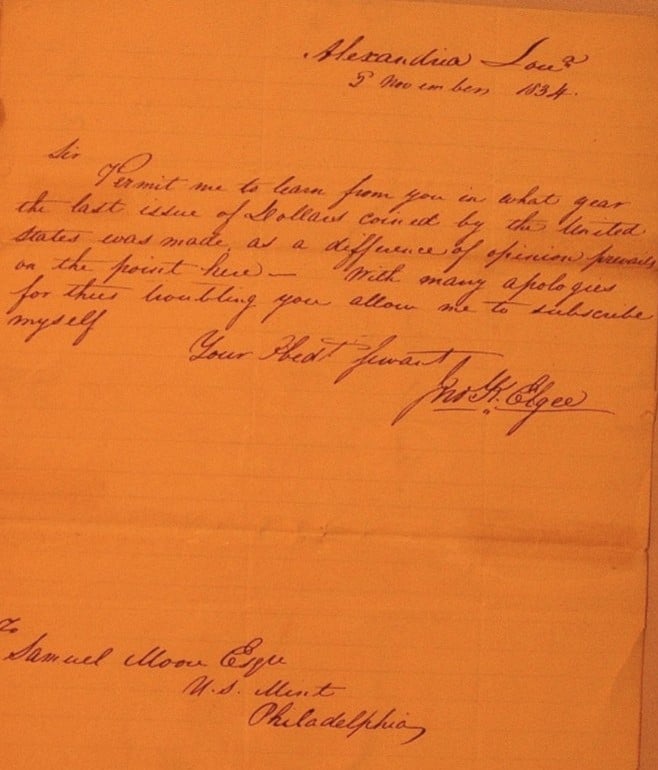 Alexandria Lou^a
5 November 1834.
Sir
Permit me to learn from you in what year
the last issue of Dollars coined by the United
States was made, as a difference of opinion prevails
on the point here — With many apologies
for thus troubling you allow me to subscribe
myself
Your Obedt Servant
Jno K. Elgee
To
Samuel Moore Esqre
U.S. Mint
Philadelphia